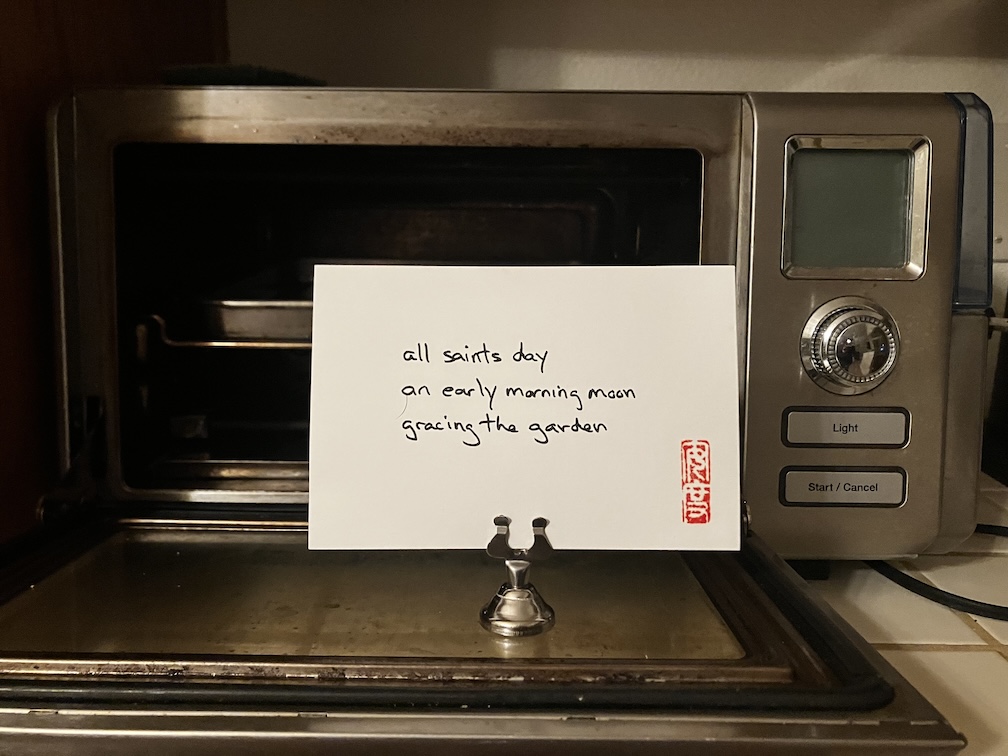 all saints day
an early morning moon
gracing the garden
Light
Start / Cancel